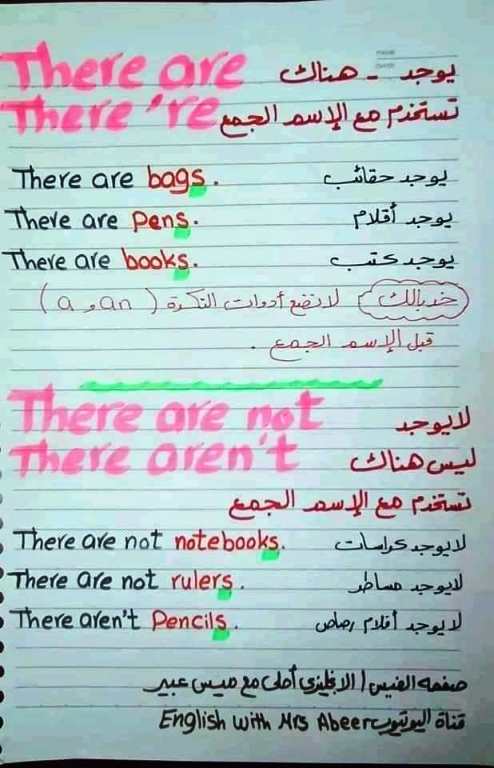 There are يوجد - هناك
There 're تستخدم مع الإسم الجمع
There are bags. يوجد حقائب
There are pens. يوجد أقلام
There are books. يوجد كتب
خد بالك لا نضع أدوات النكرة (a و an)
قبل الإسم الجمع .
There are not لا يوجد
There aren't ليس هناك
تستخدم مع الإسم الجمع
There are not notebooks. لا يوجد كراسات
There are not rulers. لا يوجد مساطر
There aren't Pencils. لا يوجد أقلام رصاص
صفحه الفيس / الانجليزي أحلى مع ميس عبير
قناة اليوتيوب English with Mrs Abeer